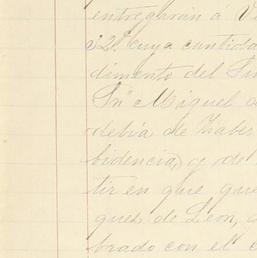 entregharán á V
32$ cuya cantida
dimento del
Sn. Miguel d
debia de haber
bidencia) y de
tir en que que
ques de Leon,
brado con el